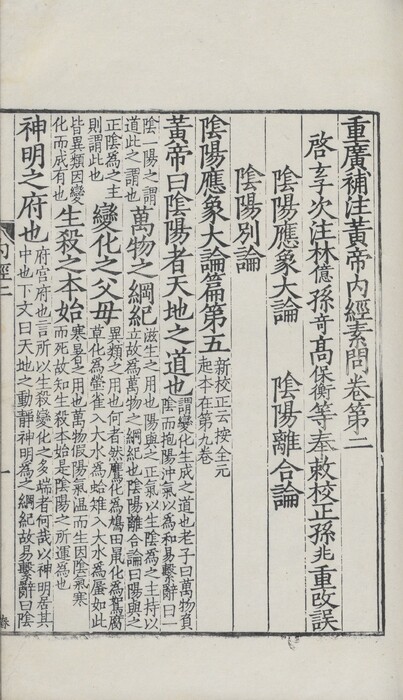 重廣補注黃帝內經素問卷第二
啓玄子次注林億孫奇高保衡等奉敕校正孫兆重改誤
陰陽應象大論 陰陽離合論
陰陽別論
陰陽應象大論篇第五 新校正云按全元起本在第九卷
黃帝曰陰陽者天地之道也 謂變化生成之道也老子曰萬物負陰而抱陽沖氣以為和易繫辭曰一
陰一陽之謂道此之謂也 萬物之綱紀 滋生之用也陽與之正氣以生陰為之主持以立故為萬物之綱紀也陰陽離合論曰陽與之
正陰為之主則謂此也 變化之父母 異類之用也何者然鷹化為鳩田鼠化為鴽腐草化為螢雀入大水為蛤雉入大水為蜃如此
皆異類因變化而成有也 生殺之本始 寒暑之用也萬物假陽氣溫而生因陰氣寒而死故知生殺本始是陰陽之所運為也
神明之府也 府宮府也言所以生殺變化之多端者何哉以神明居其中也下文曰天地之動靜神明為之綱紀故易繫辭曰陰
內經二 一